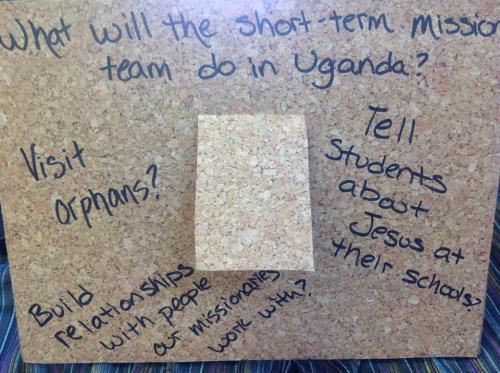 What will the short-term mission
team do in Uganda?
Visit
orphans?
Tell
Students
about
Jesus at
their schools?
Build
relationships
with people
our missionaries
work with?